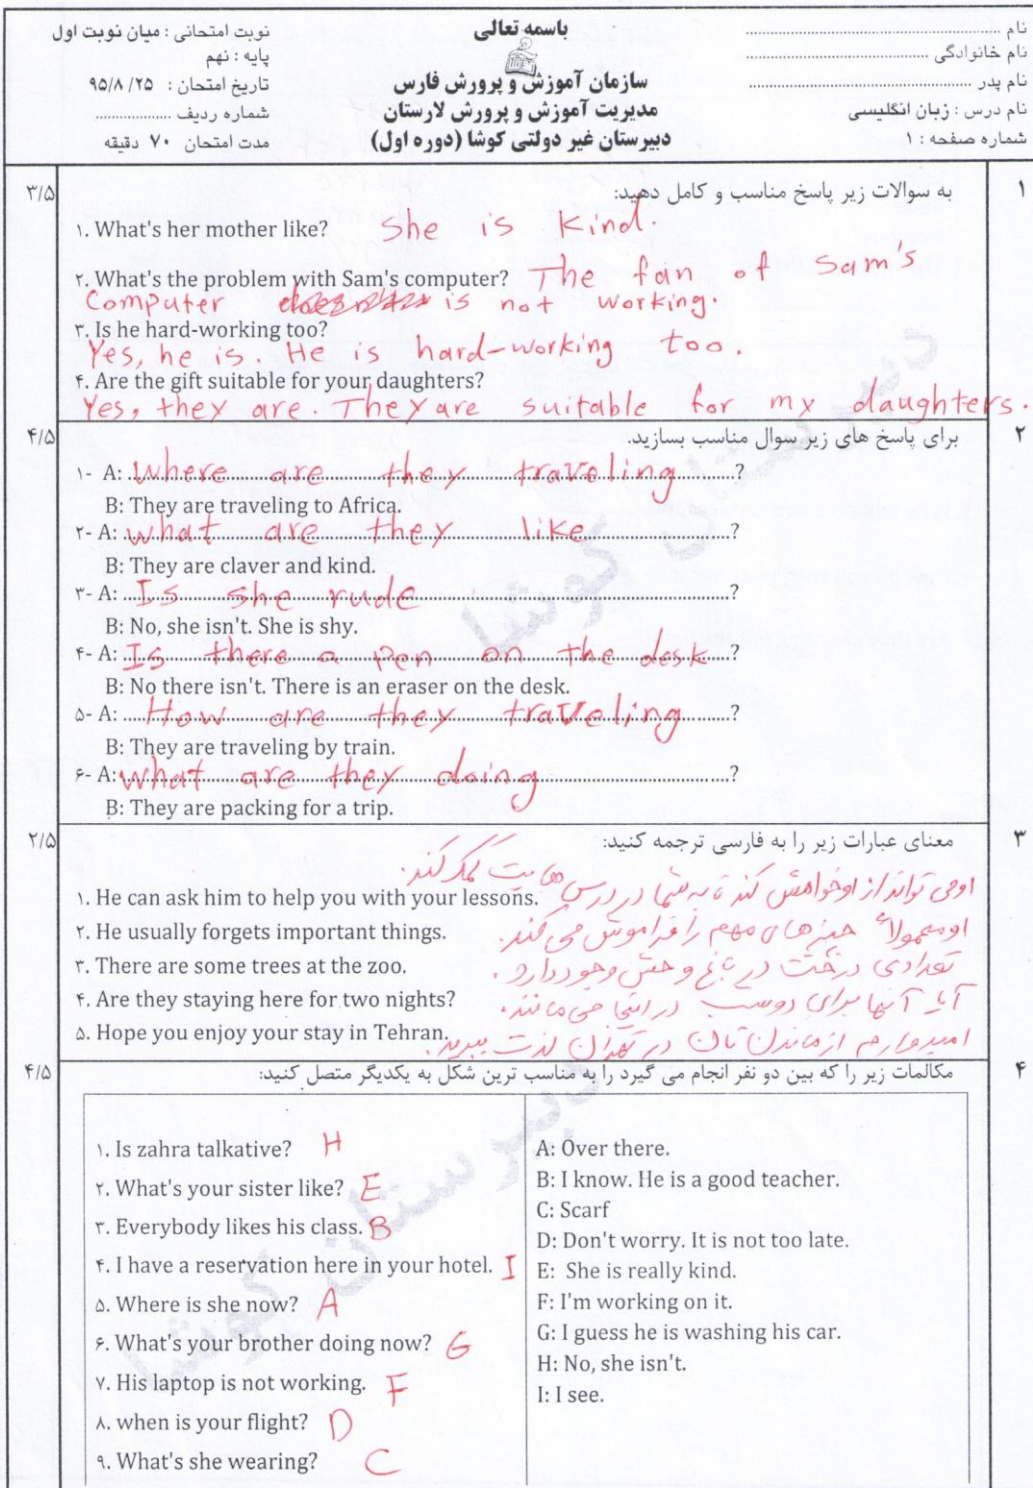 باسمه تعالی
نام
نام خانوادگی
نام پدر
نام درس : زبان انگلیسی
شماره صفحه : ۱
سازمان آموزش و پرورش فارس
مدیریت آموزش و پرورش لارستان
دبیرستان غیر دولتی کوشا (دوره اول)
نوبت امتحانی : میان نوبت اول
پایه : نهم
تاریخ امتحان : ۹۵/۸/۲۵
شماره ردیف
مدت امتحان ۷۰ دقیقه
۱ به سوالات زیر پاسخ مناسب و کامل دهید: ۳/۵
۱. What's her mother like? She is kind.
۲. What's the problem with Sam's computer? The fan of Sam's
Computer is not working.
۳. Is he hard-working too?
Yes, he is. He is hard-working too.
۴. Are the gift suitable for your daughters?
Yes, they are. They are suitable for my daughters.
۲ برای پاسخ های زیر سوال مناسب بسازید. ۴/۵
۱- A: Where are they traveling ?
B: They are traveling to Africa.
۲- A: what are they like ?
B: They are claver and kind.
۳- A: Is she rude ?
B: No, she isn't. She is shy.
۴- A: Is there a pen on the desk ?
B: No there isn't. There is an eraser on the desk.
۵- A: How are they traveling ?
B: They are traveling by train.
۶- A: what are they doing ?
B: They are packing for a trip.
۳ معنای عبارات زیر را به فارسی ترجمه کنید: ۲/۵
۱. He can ask him to help you with your lessons. او می تواند از او خواهش کند تا به شما در درس هایت کمک کند.
۲. He usually forgets important things. او معمولاً چیزهای مهم را فراموش می کند.
۳. There are some trees at the zoo. تعدادی درخت در باغ وحش وجود دارد.
۴. Are they staying here for two nights? آیا آنها برای دو شب در اینجا می مانند.
۵. Hope you enjoy your stay in Tehran. امیدوارم از ماندن تان در تهران لذت ببرید.
۴ مکالمات زیر را که بین دو نفر انجام می گیرد را به مناسب ترین شکل به یکدیگر متصل کنید: ۴/۵
۱. Is zahra talkative? H
۲. What's your sister like? E
۳. Everybody likes his class. B
۴. I have a reservation here in your hotel. I
۵. Where is she now? A
۶. What's your brother doing now? G
۷. His laptop is not working. F
۸. when is your flight? D
۹. What's she wearing? C
A: Over there.
B: I know. He is a good teacher.
C: Scarf
D: Don't worry. It is not too late.
E: She is really kind.
F: I'm working on it.
G: I guess he is washing his car.
H: No, she isn't.
I: I see.
دبیرستان کوشا
دبیرستان کوشا